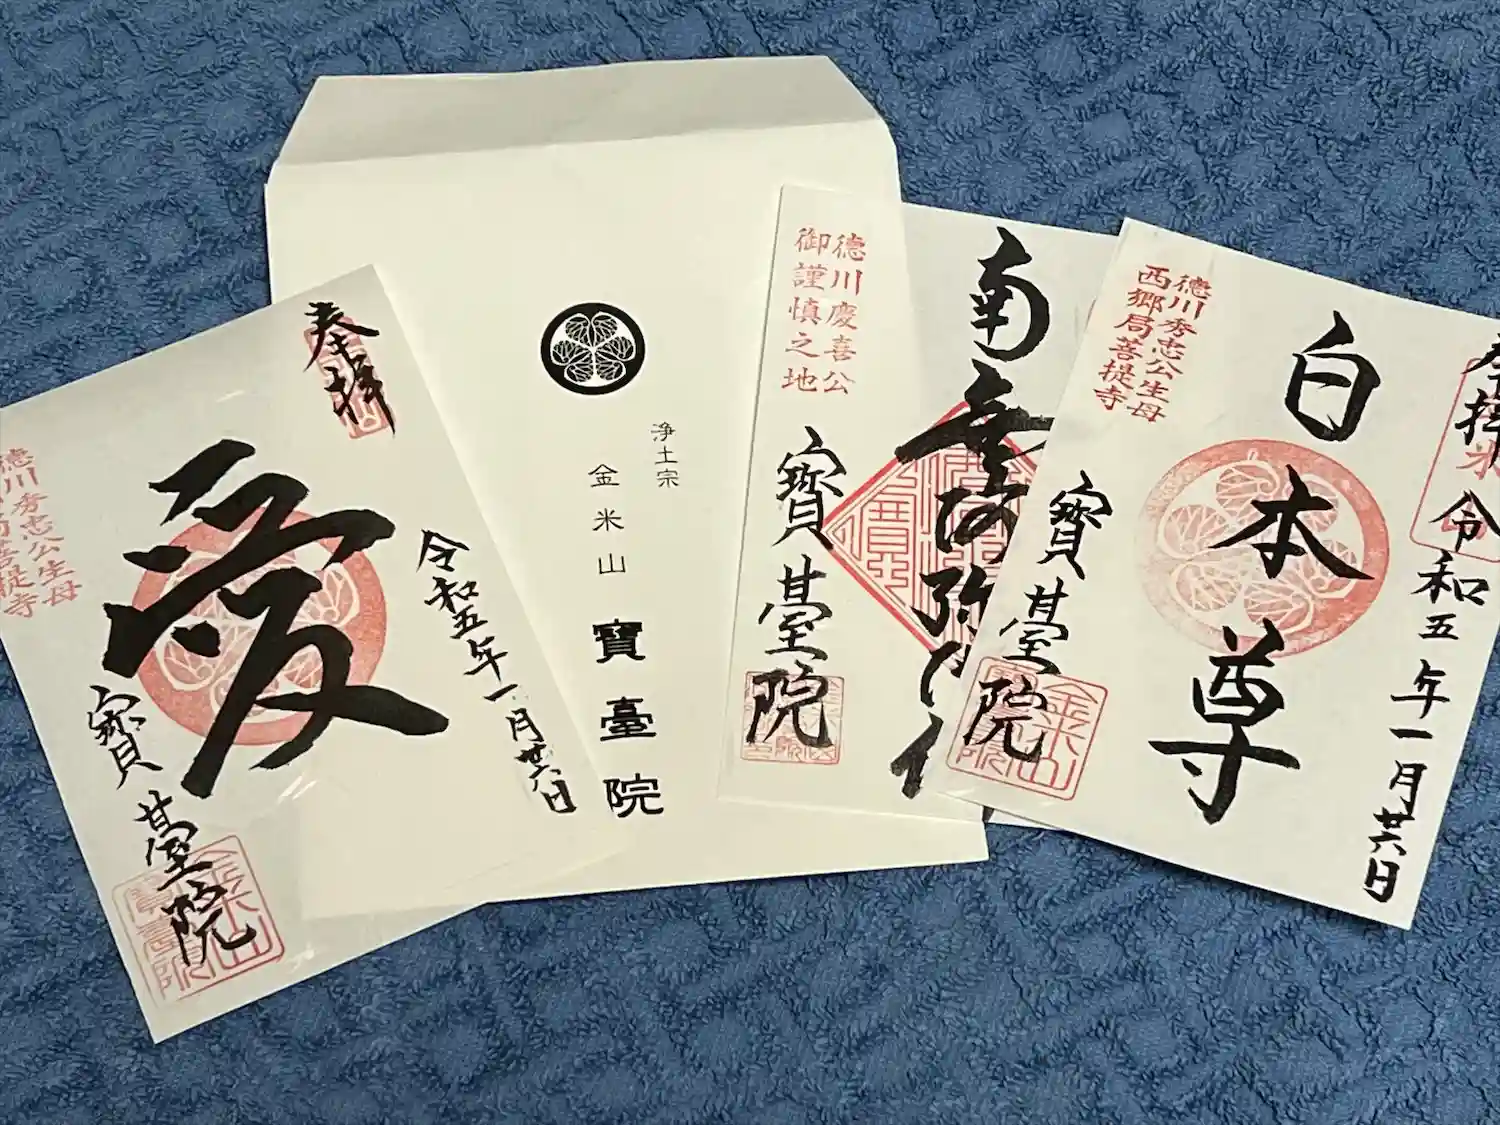 奉拝
愛
令和五年一月廿六日
德川秀忠公生母
西郷局菩提寺
寶臺院
浄土宗
金米山
寶臺院
南無阿弥陀仏
德川慶喜公
御謹慎之地
寶臺院
奉拝
令和五年一月廿六日
白本尊
德川秀忠公生母
西郷局菩提寺
寶臺院
金米山